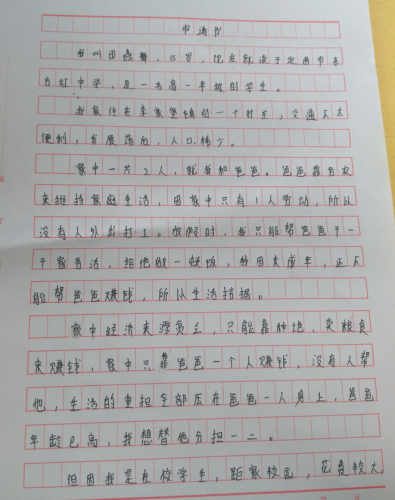 申请书
我叫田燕舞，15岁，现在就读于定西市东
方红中学，是一名高一年级的学生。
我家住在李家堡镇的一个村庄，交通不太
便利，发展落后，人口稀少。
家中一共2人，就我和爸爸。爸爸靠务农
来维持家庭生活，因家中只有1人劳动，所以
没有人外出打工。放假时，我只能帮爸爸干一
干家务活，给他做一顿饭，韩田未成年，还不
能帮爸爸赚钱，所以生活拮据。
家中经济来源贫乏，只能靠种地，卖粮食
来赚钱，家中只靠爸爸一个人赚钱，没有人帮
他，生活的重担全部压在爸爸一人身上，爸爸
年龄已高，我想替他分担一二。
但因我是在校学生，距家较远，花费较大，